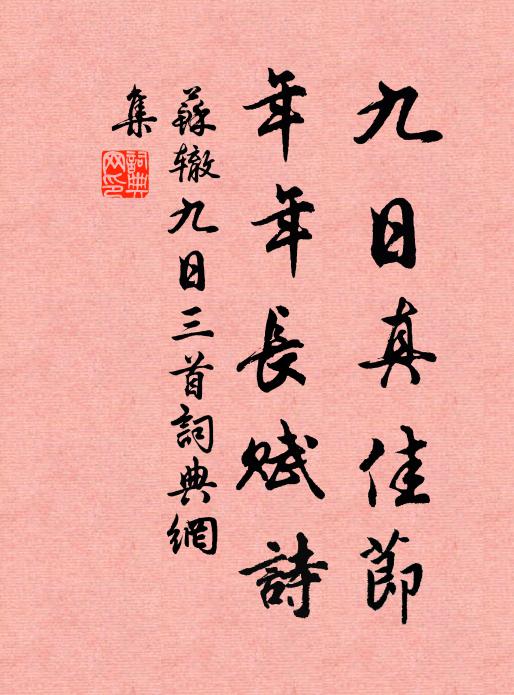 九日真佳節
年年長賦詩
蘇辙九日三首詞典網
集
詞典
网印